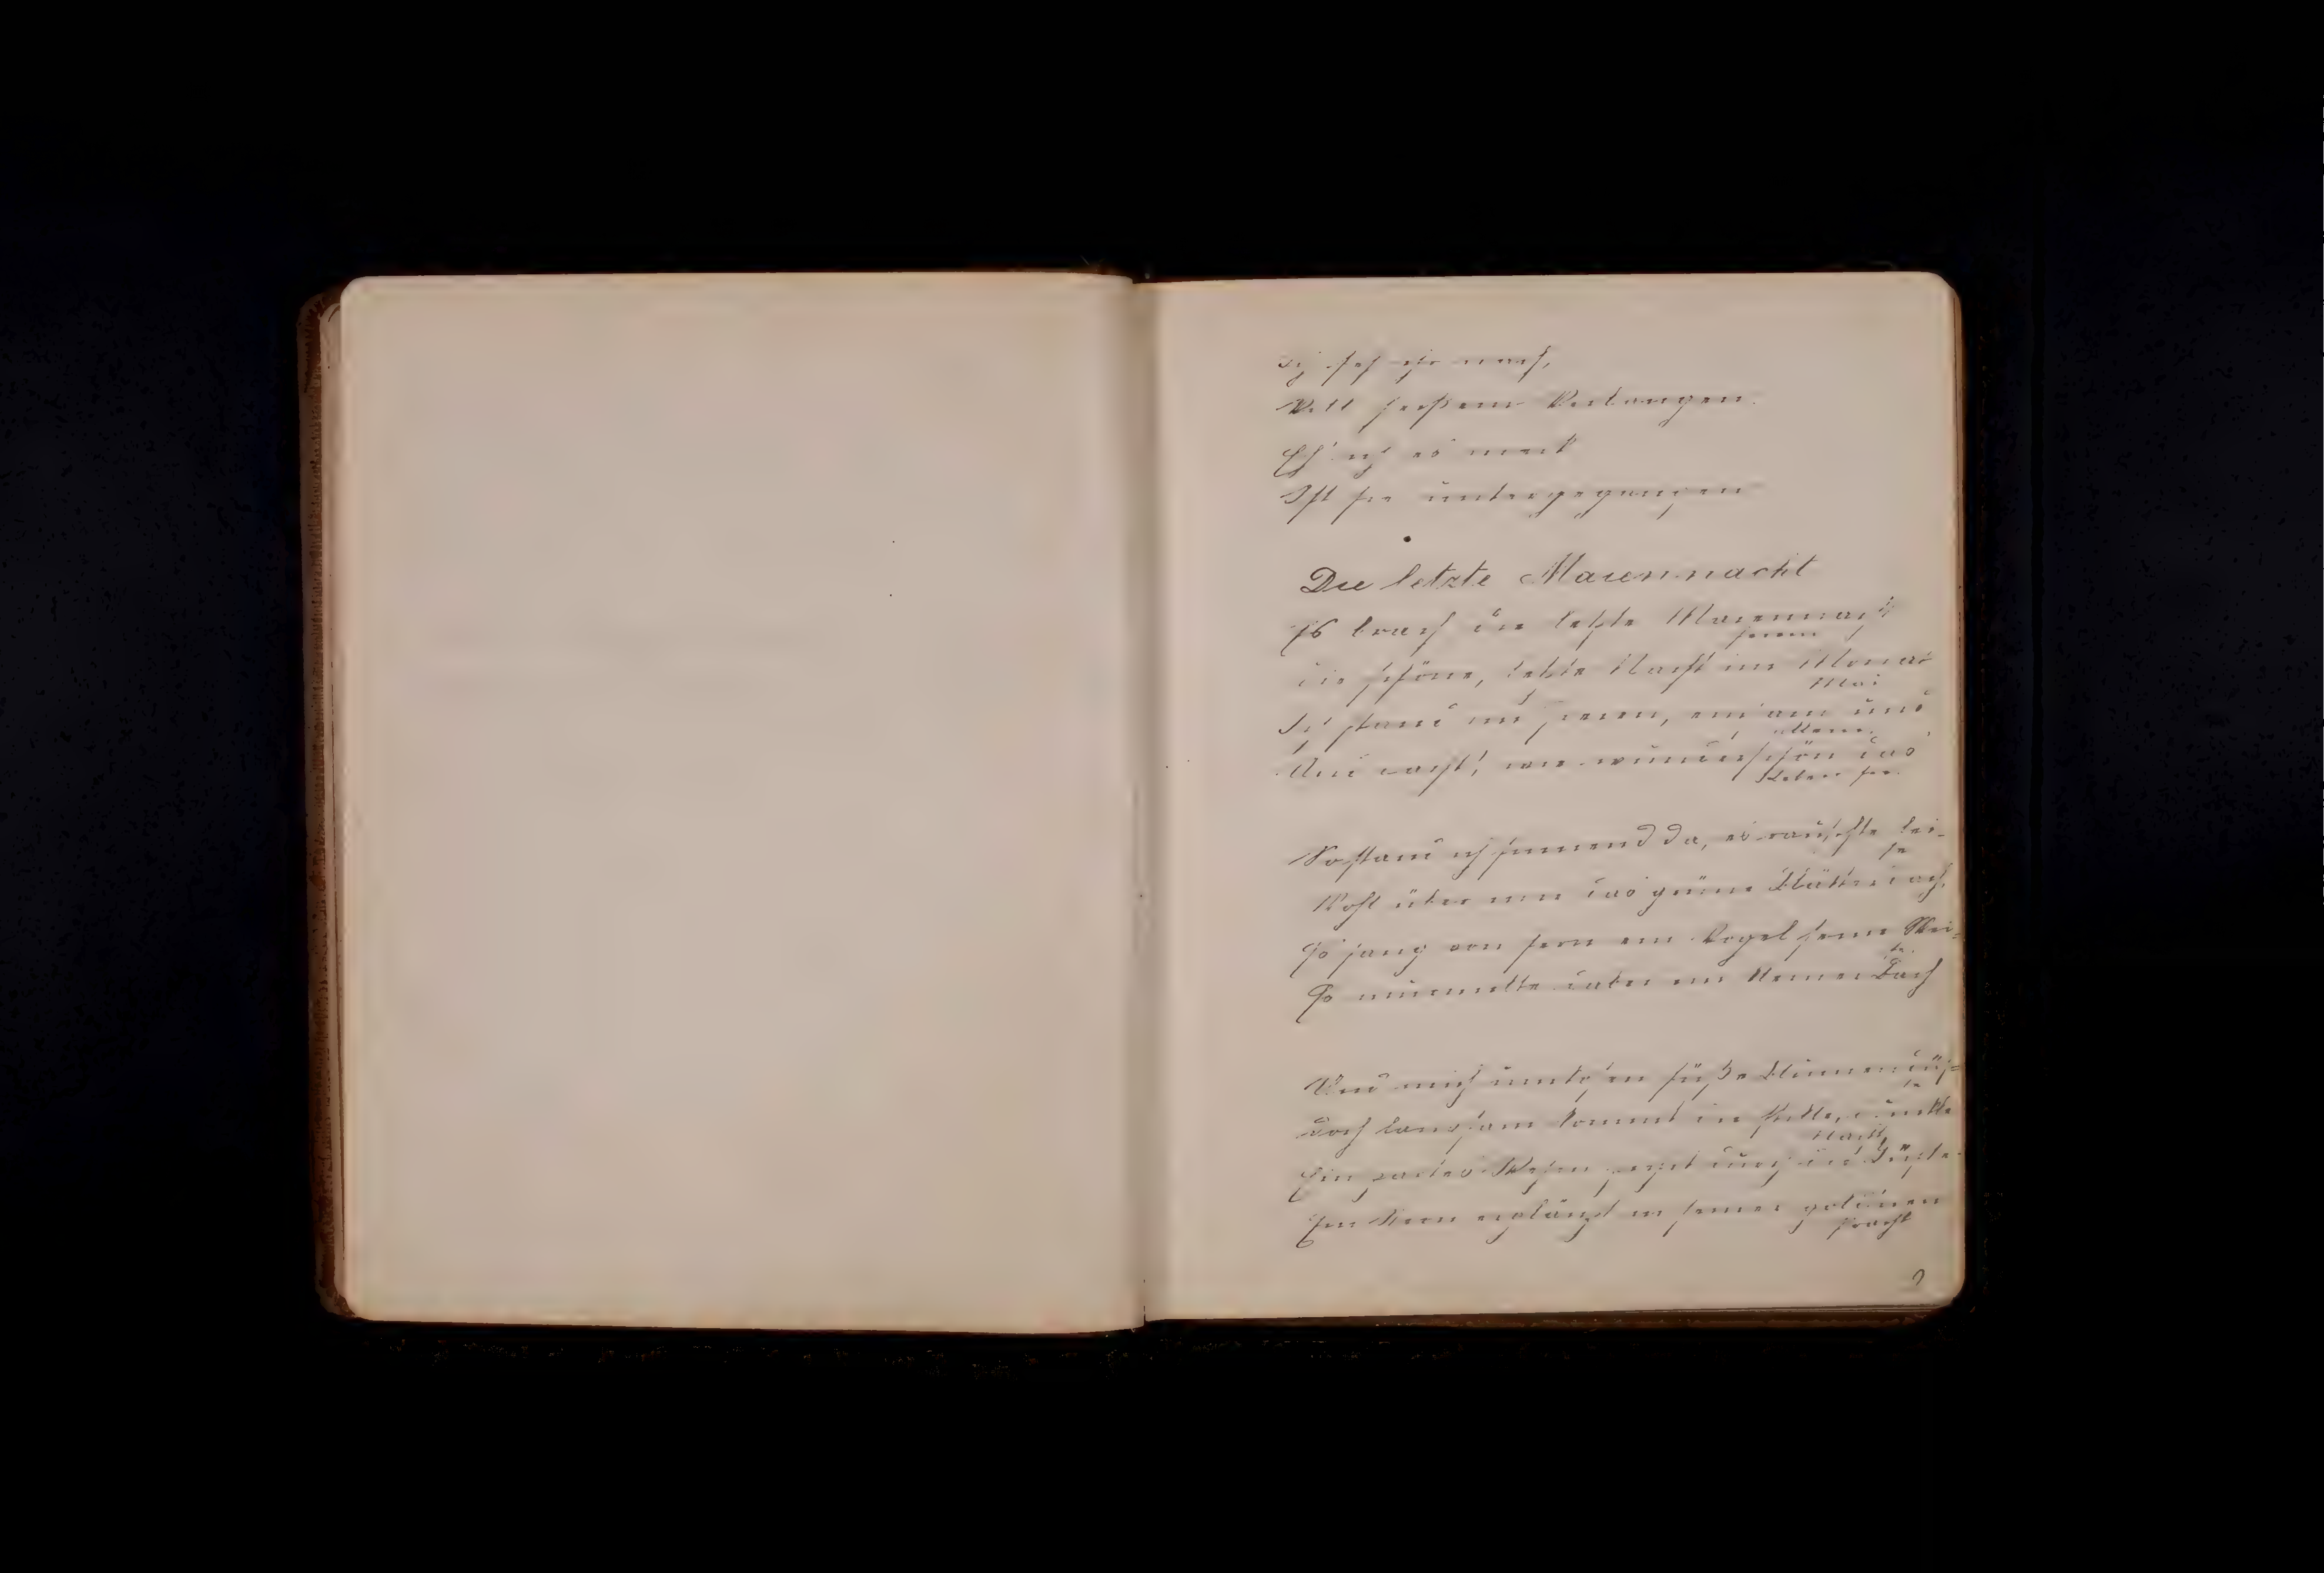 Ich seh ihr nach,
Voll heißem Verlangen.
Eh' ich es merk
Ist sie untergegangen
Die letzte Maiennacht
Es brach die letzte Maiennacht
herein
die schöne, letzte Nacht im Monat
Mai
Ich stand im Freien, einsam und
allein.
Und dacht', wie wunderschön das
Leben sei.
So stand ich sinnend da, es rauschte lei-
se
Wohl über mir das grüne Blätterdach,
Es sang von fern ein Vogel seine Wei-
se.
Es murmelte dabei ein kleiner Bach
Und mich umkosen süße Blumendüf-
te
Doch langsam kommt die stille, dunkle
Nacht,
Ein zartes Wesen durch die Lüfte
Ein Stern erglänzt in seiner goldnen
Pracht